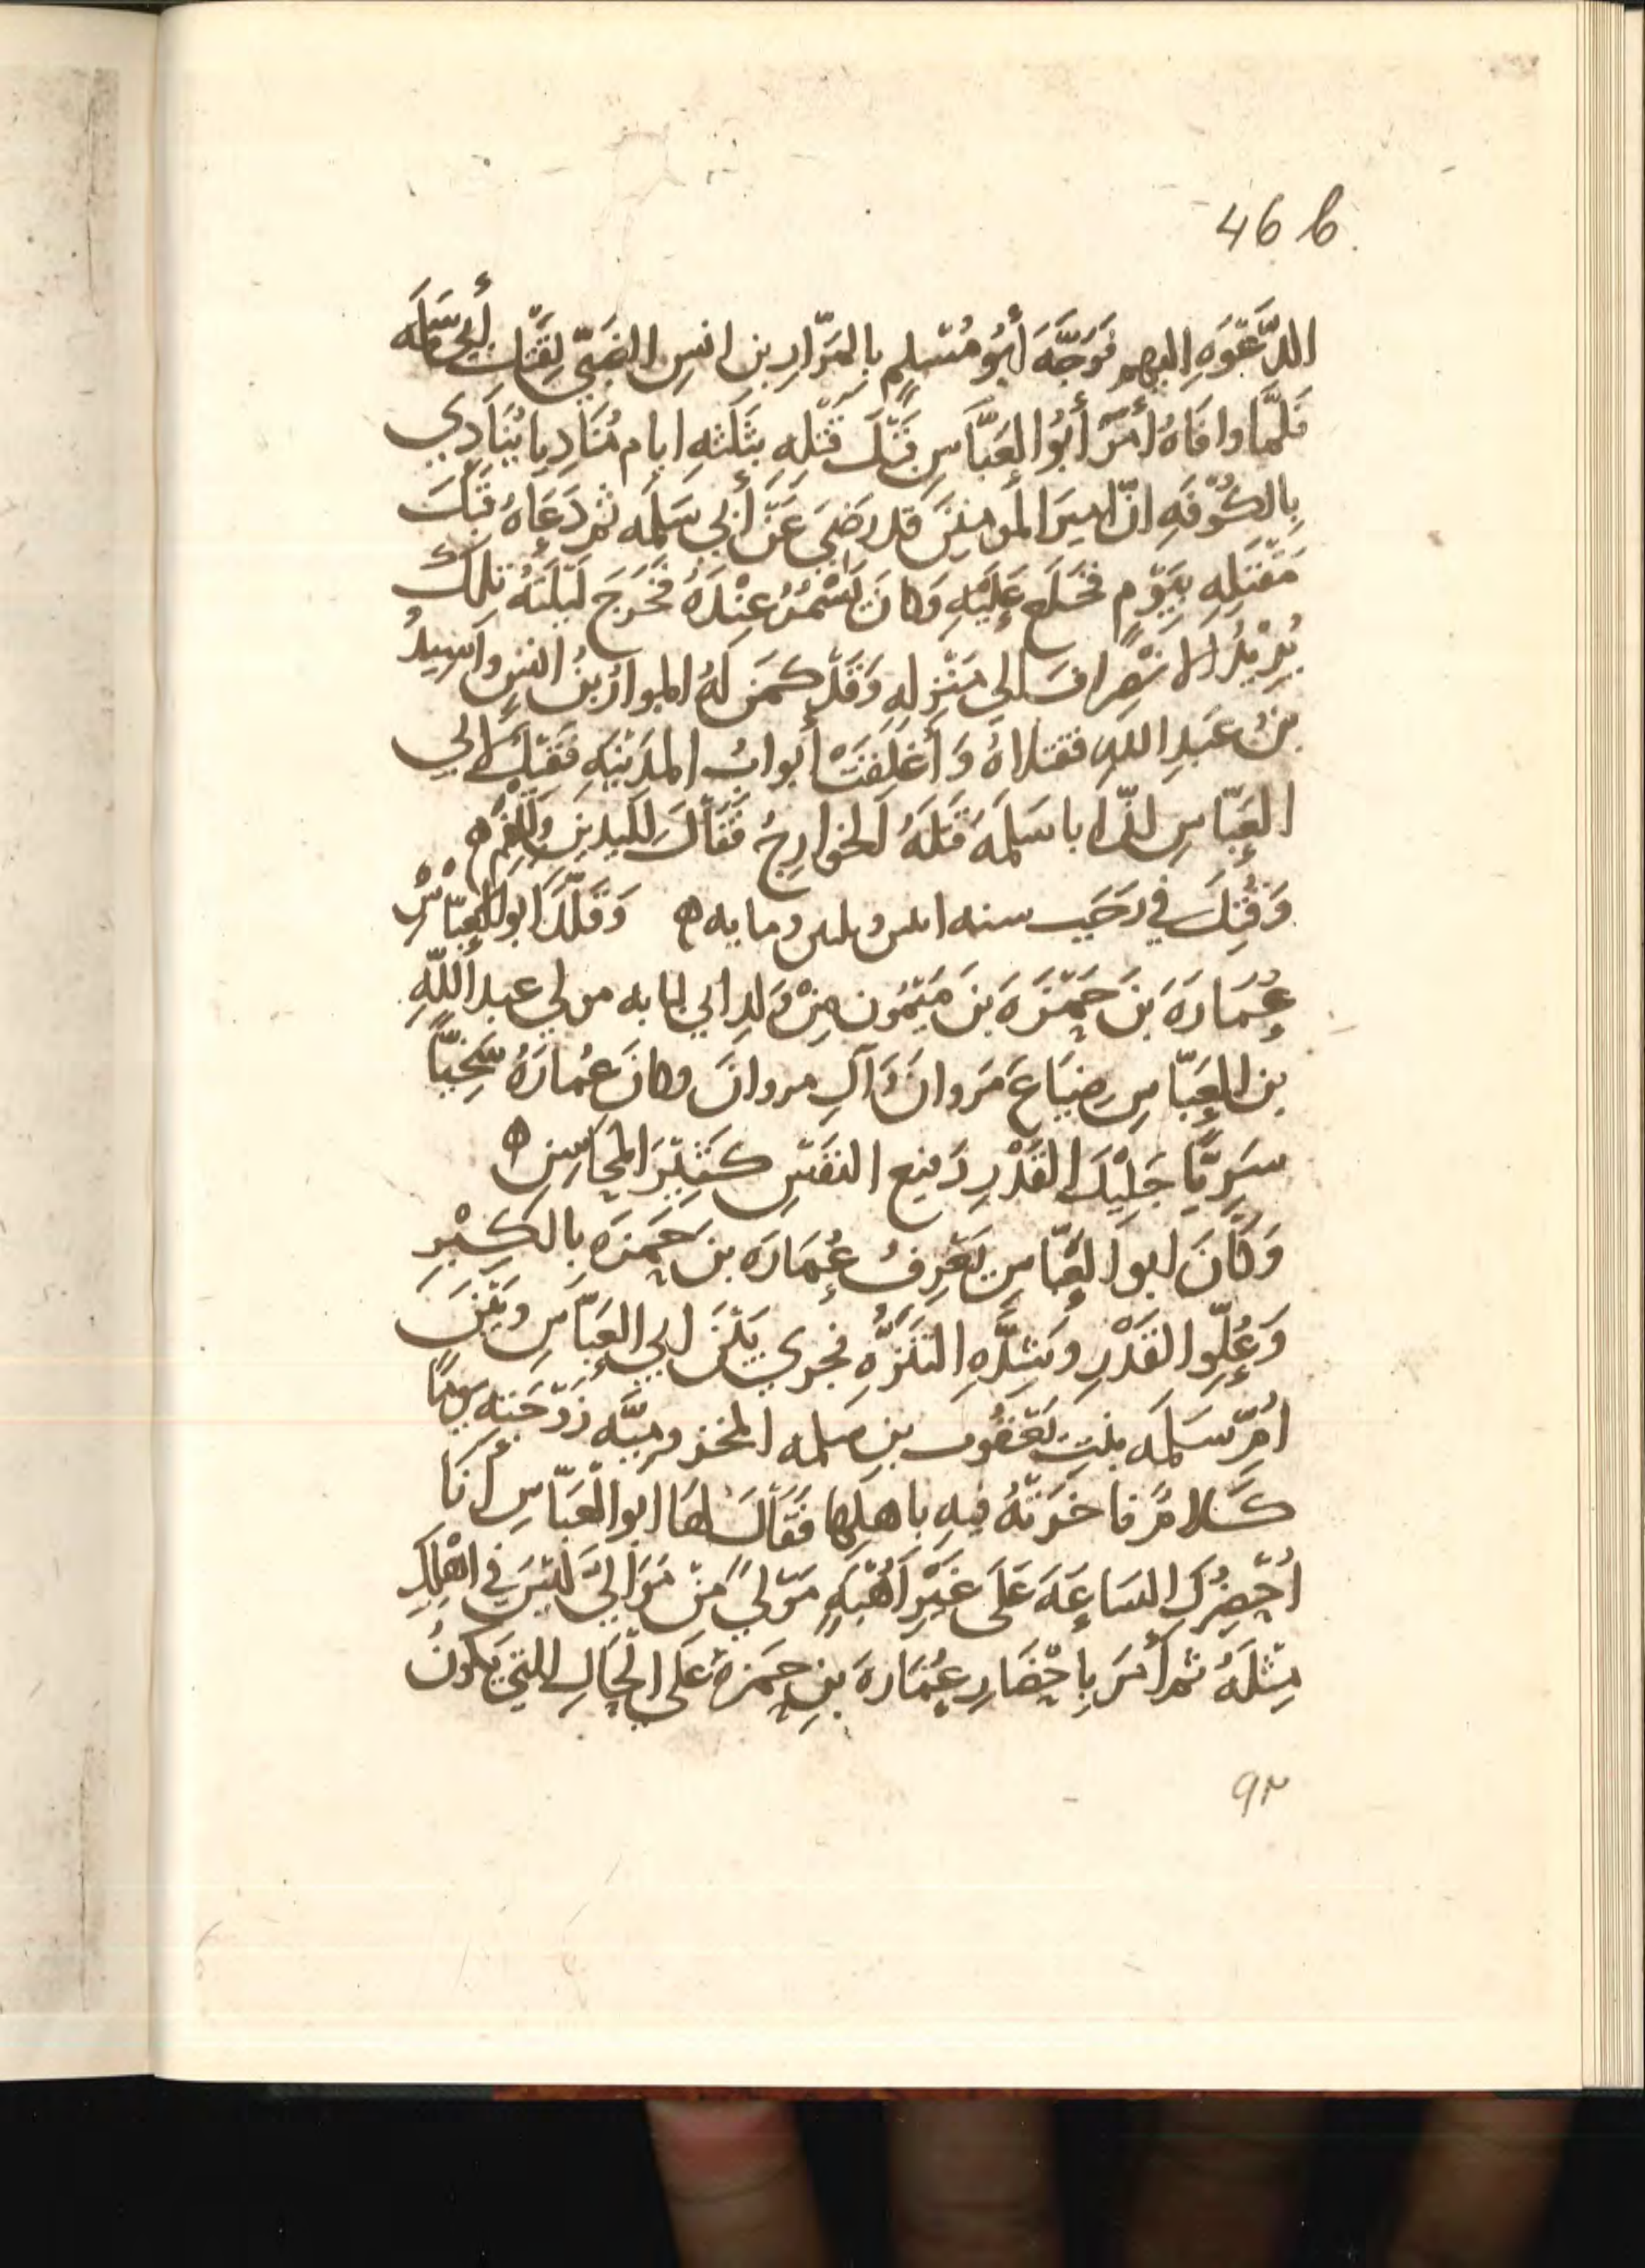 46 b.
الدَّعْوَةِ اليهم فَوَجَّهَ أَبُو مُسْلِمٍ بِالمَرَّارِ بن انسِ الضَبّيّ لِقَتْلِ أَبِي سَلَمَه
فَلَمَّا وافَاهُ أَمَرَ أَبُو العَبَّاسِ قَبْلَ قَتْلِهِ بِثَلَثَهِ ايام مُنَادِيا يُنَادِي
بِالكُوْفَهِ انّ امِيرَ المومنينَ قد رَضِيَ عَنْ أَبي سَلَمَه ثم دَعَاهُ قَبْلَ
مَقْتَلِهِ بِيَوْمٍ فَخَلَع عَلَيْهِ وَكانَ يَسْمُرُ عِنْدَهُ فَخَرَجَ لَيْلَتَهُ تلك
يُرِيْدُ الانْصِرافَ الي مَنْزِلِهِ وَقَدْ كمَنَ لَهُ المرارُ بنُ انسٍ واَسِيدُ
بنُ عَبدِ اللهِ فقتلاهُ وَأَغْلِقَتْ أَبوابُ المدَيْنَهِ فَقِيْلَ لابي
العَبّاسِ انّ ابا سَلَمَه قَتَلَهُ الخوارِجُ فَقَالَ لليدينِ وَلِلْفَمِ ه
وَقُتِلَ في رَجَبِ سنه اىىىں وىلىىں ومايه ه وَقَلَّدَ ابو العَبّاسْ
عُمَارَةَ بنَ حَمْزَةَ بنَ مَيْمُون مِنْ وَلدِ ابي لبابه مولي عبد اللّهِ
بن العَبّاسِ ضِيَاعَ مَروانَ وَآلِ مروانَ وكانَ عُمارَهُ سَخِيّاً
سَرِيًّا جَلِيْلَ القَدْرِ رَفيع النَفْسِ كَثِيْرَ المَحَاسِنِ ه
وَكَانَ ابو العَبّاسِ يَعْرِفُ عُمَارَه بنَ حَمزَه بِالكِبْرِ
وَعُلُوِّ القَدْرِ وشِدَّهِ التَنَزُّهِ فجري بَيْنَ ابي العَبّاسِ وبَيْنَ
امِّ سَلَمَه بنتِ يَعْقُوب بن سلمه المخزوميَّه زَوْجَتِهِ يومًا
كَلامٌ فاخَرَتْهُ فيهِ باهلِها فَقَالَ لها ابو العَبّاسِ أنَا
اُحْضِرُكِ السَاعَهَ عَلَى غَيْرِ اُهْبَهٍ مَوْليً مِنْ مَوَالِيَّ لَيْسَ في اهْلِكِ
مِثْلَهُ ثم أمَرَ بِاحْضَارِ عُمَارَةَ بنِ حَمزة عَلَى الحَالِ التي يَكُونُ
٩٢